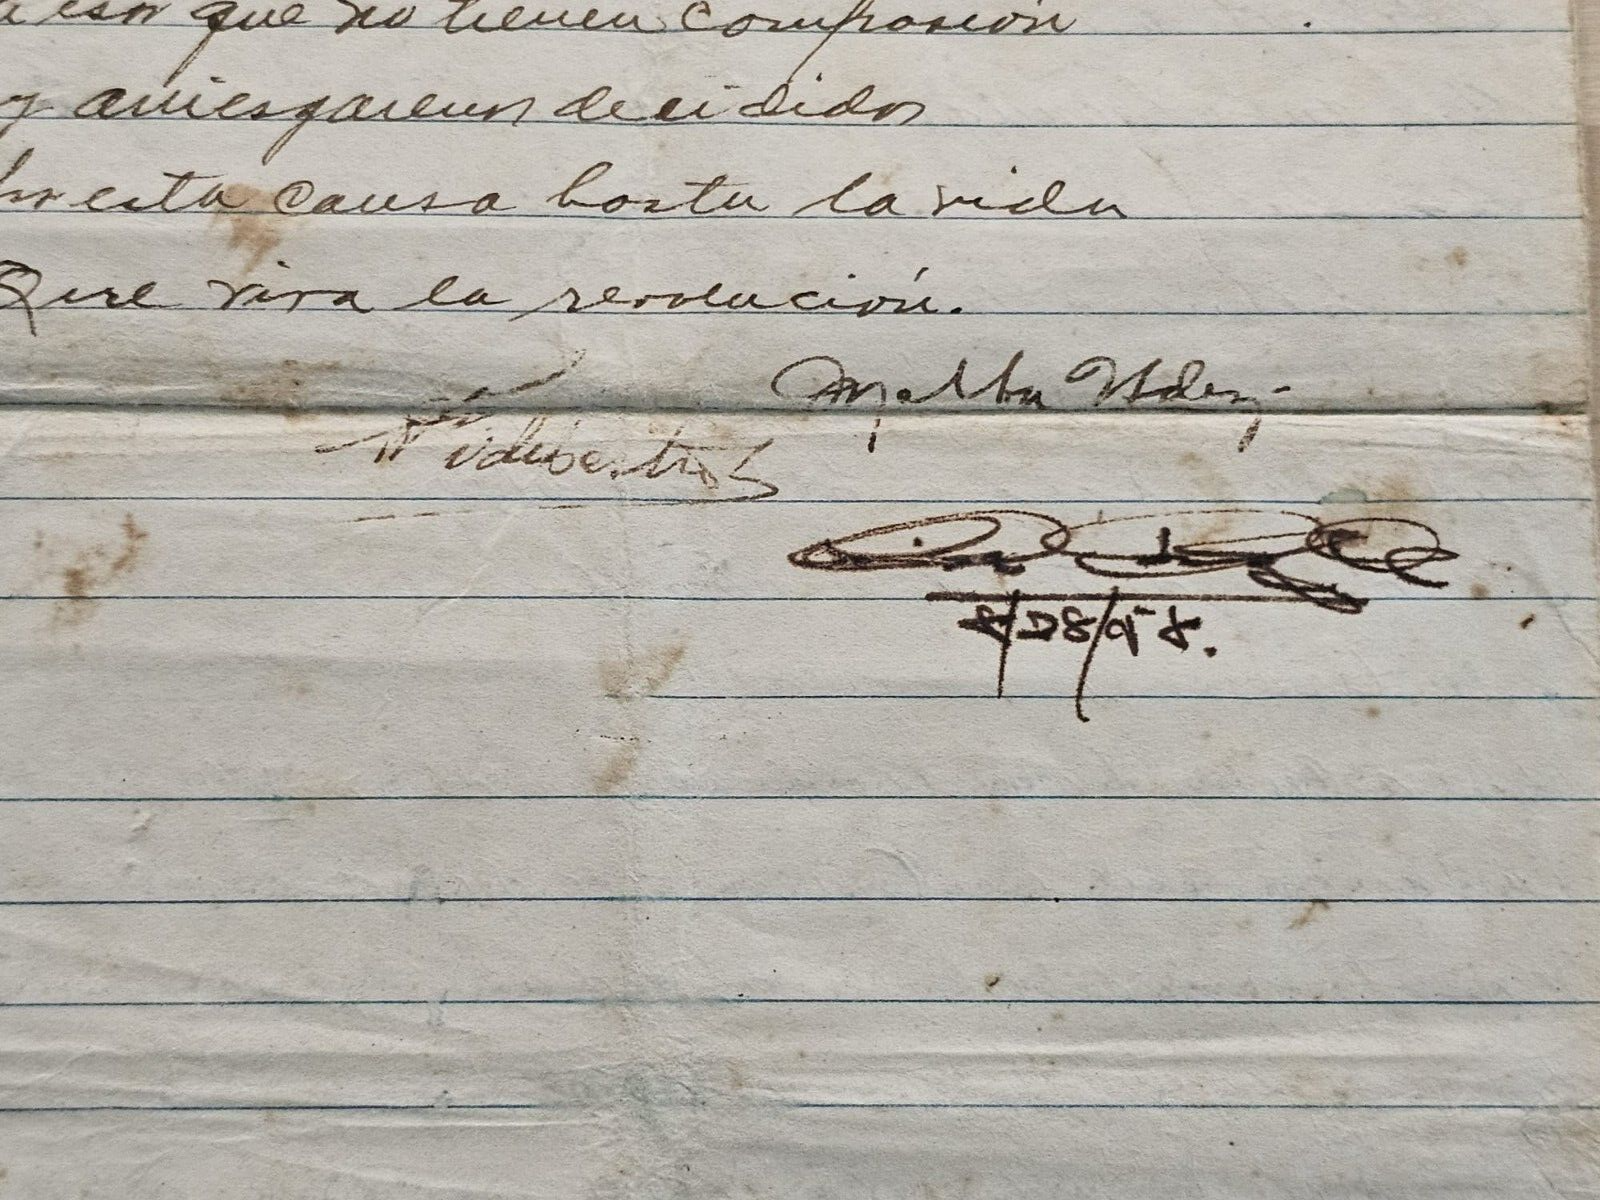 a eso que no tienen compasión
y arriesgaremos decididos
esta causa hasta la vida
Que viva la revolución.
Melba Hdez.
Fidelcastro
8/DS/58.